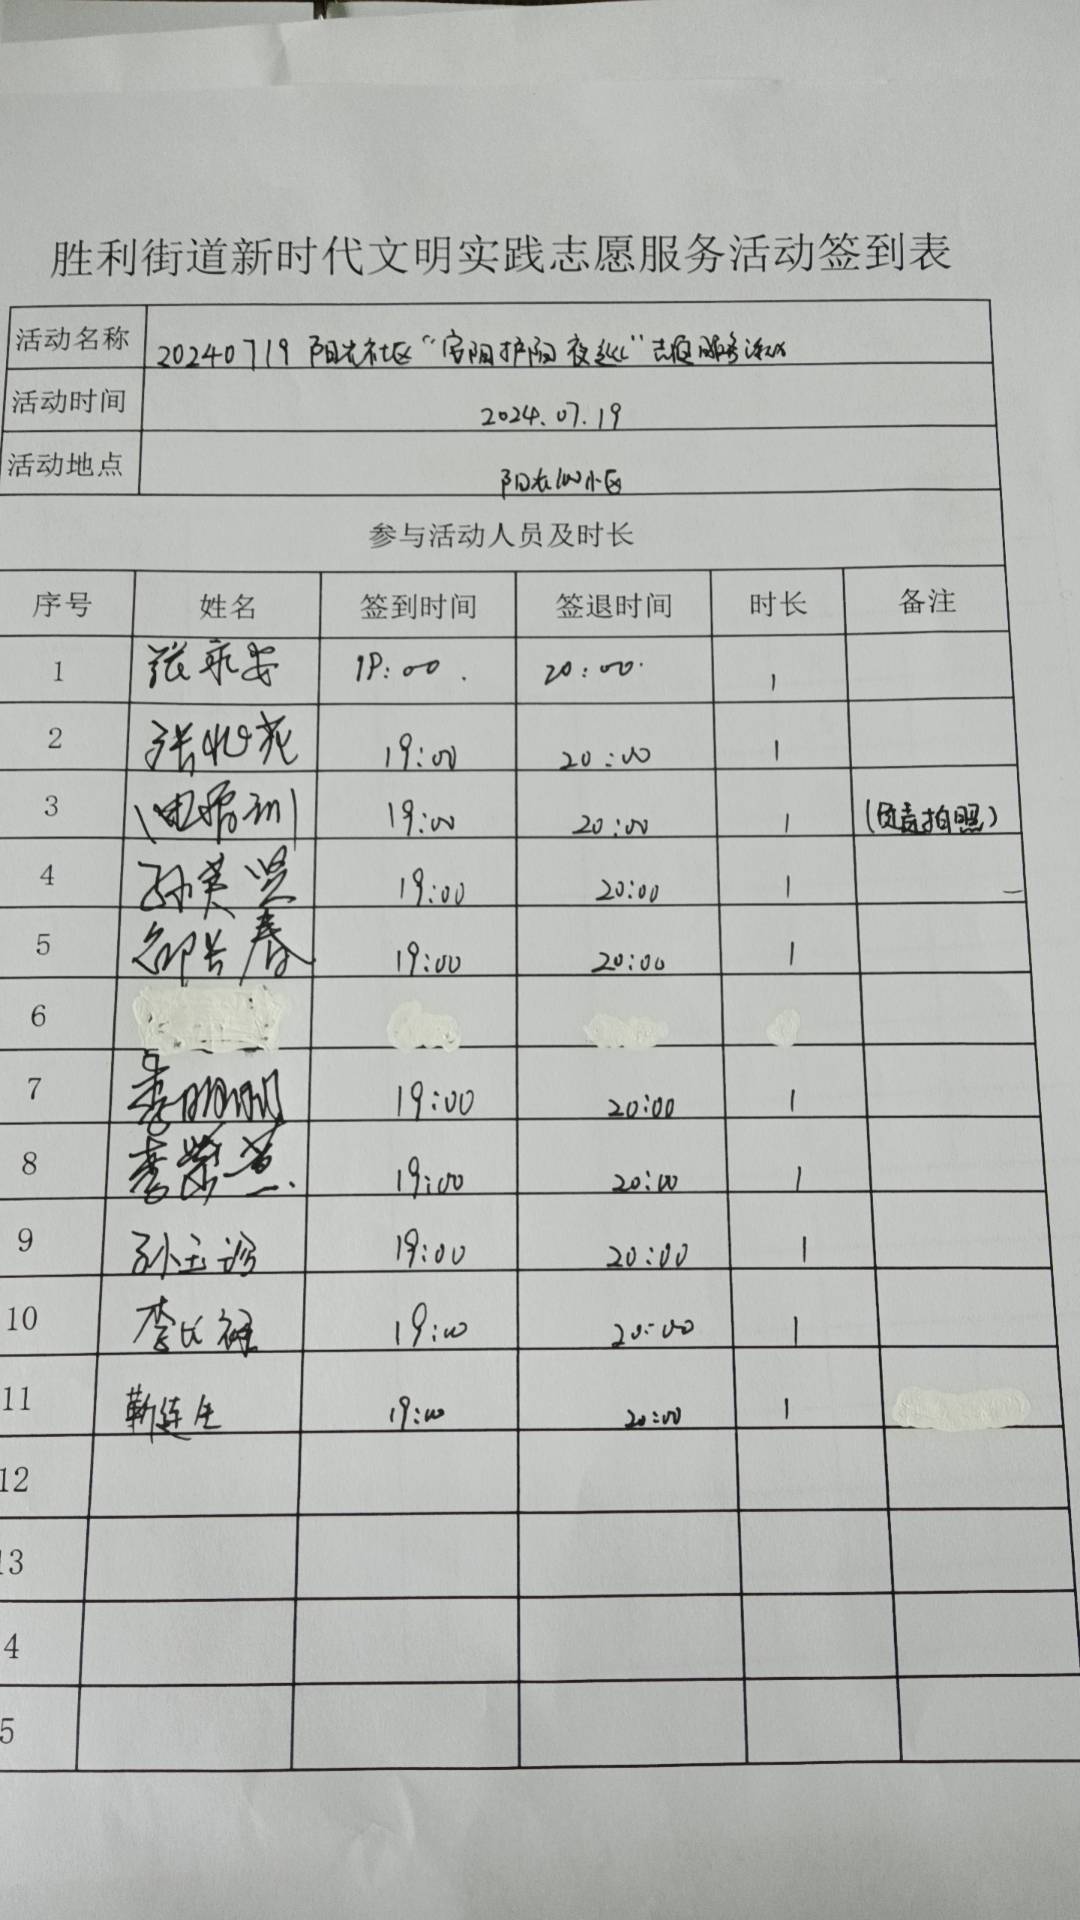 胜利街道新时代文明实践志愿服务活动签到表
活动名称 20240719 阳光社区“宫阳护阳 夜巡”志愿服务活动
活动时间 2024.07.19
活动地点 阳光100小区
参与活动人员及时长
序号 姓名 签到时间 签退时间 时长 备注
1 张永安 19:00 20:00 1
2 张 19:00 20:00 1
3 19:00 20:00 1 (负责拍照)
4 孙英贤 19:00 20:00 1
5 邵长春 19:00 20:00 1
6
7 李明明 19:00 20:00 1
8 李荣 19:00 20:00 1
9 孙玉珍 19:00 20:00 1
10 李长禄 19:00 20:00 1
11 靳连生 19:00 20:00 1
12
13
4
5